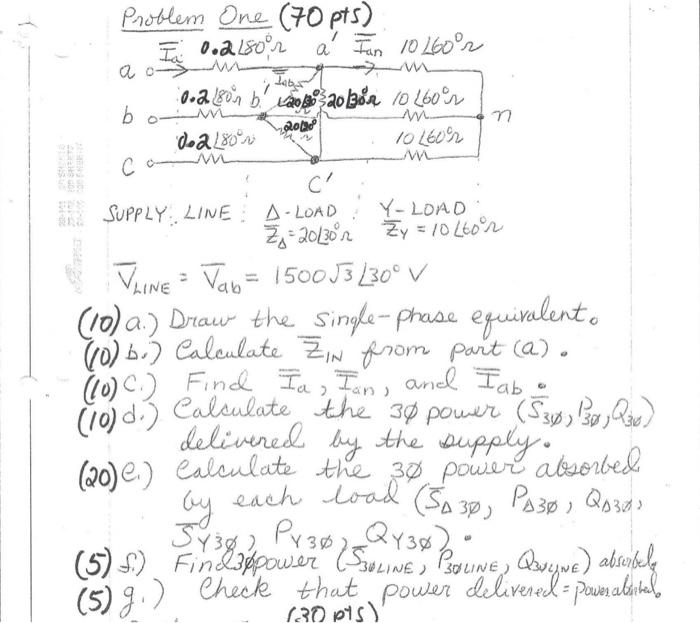 Problem One (70 pts)
Ia 0.2∠80°Ω a' Ian 10∠60°Ω
a
Iab
0.2∠80°Ω b' ∠20∠30° 20∠30°Ω 10∠60°Ω
b n
20∠30°
0.2∠80°Ω 10∠60°Ω
C
C'
SUPPLY LINE Δ-LOAD Y-LOAD
Z̅Δ = 20∠30°Ω Z̅Y = 10∠60°Ω
V̅LINE = V̅ab = 1500√3 ∠30° V
(10) a.) Draw the single-phase equivalent.
(10) b.) Calculate Z̅IN from part (a).
(10) C.) Find I̅a, I̅an, and I̅ab.
(10) d.) Calculate the 3Ø power (S̅3Ø, P3Ø, Q3Ø)
delivered by the supply.
(20) e.) Calculate the 3Ø power absorbed
by each load (S̅Δ3Ø, PΔ3Ø, QΔ3Ø,
S̅Y3Ø, PY3Ø, QY3Ø).
(5) f.) Find 3Ø power (S̅3ØLINE, P3ØLINE, Q3ØLINE) absorbed
(5) g.) Check that power delivered = power absorbed.
(30 pts)